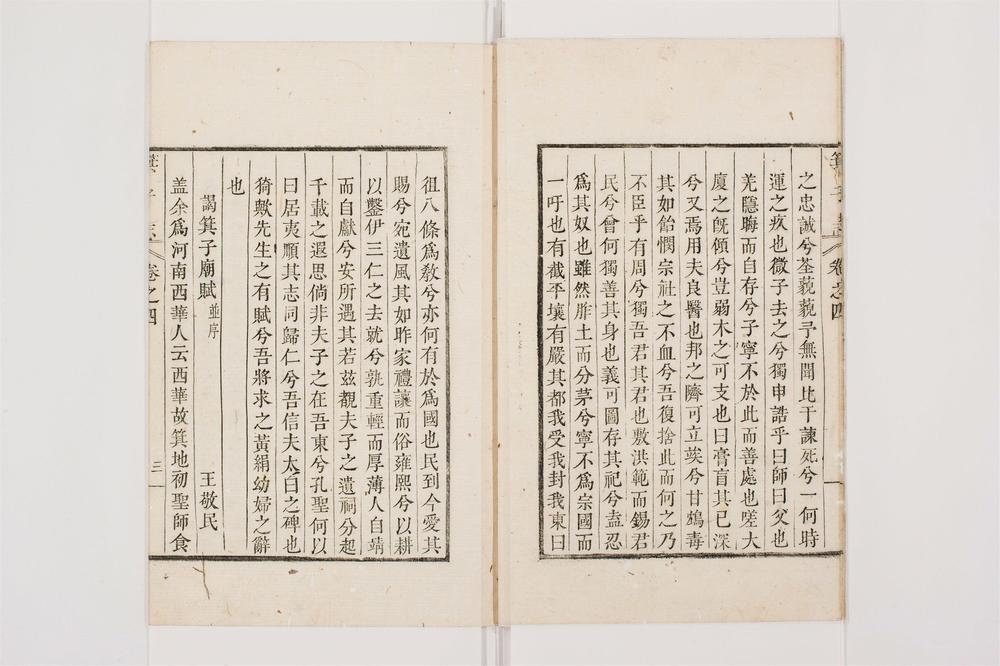 之忠誠兮荃藐藐予無聞比干諫死兮一何時
運之疚也微子去之兮獨申誥乎曰師曰父也
羌隱晦而自存兮子寧不於此而善處也嗟大
廈之旣傾兮豈弱木之可支也曰膏肓其已深
兮又焉用夫良醫也邦之隮可立竢兮甘鴆毒
其如飴憫宗社之不血兮吾復捨此而何之乃
不臣乎有周兮獨吾君其君也敷洪範而錫君
民兮曾何獨善其身也義可圖存其祀兮盍忍
爲其奴也雖然胙土而分茅兮寧不爲宗國而
一吁也有截平壤有嚴其都我受我封我東曰
卷之四
徂八條爲敎兮亦何有於爲國也民到今愛其
賜兮宛遺風其如昨家禮讓而俗雍熙兮以耕
以鑿伊三仁之去就兮孰重輕而厚薄人自靖
而自獻兮安所遇其若玆覩夫子之遺祠兮起
千載之遐思倘非夫子之在吾東兮孔聖何以
曰居夷順其志同歸仁兮吾信夫太白之碑也
猗歟先生之有賦兮吾將求之黃絹幼婦之辭
也
謁箕子廟賦 並序 王敬民
盖余爲河南西華人云西華故箕地初聖師食
卷之四 三